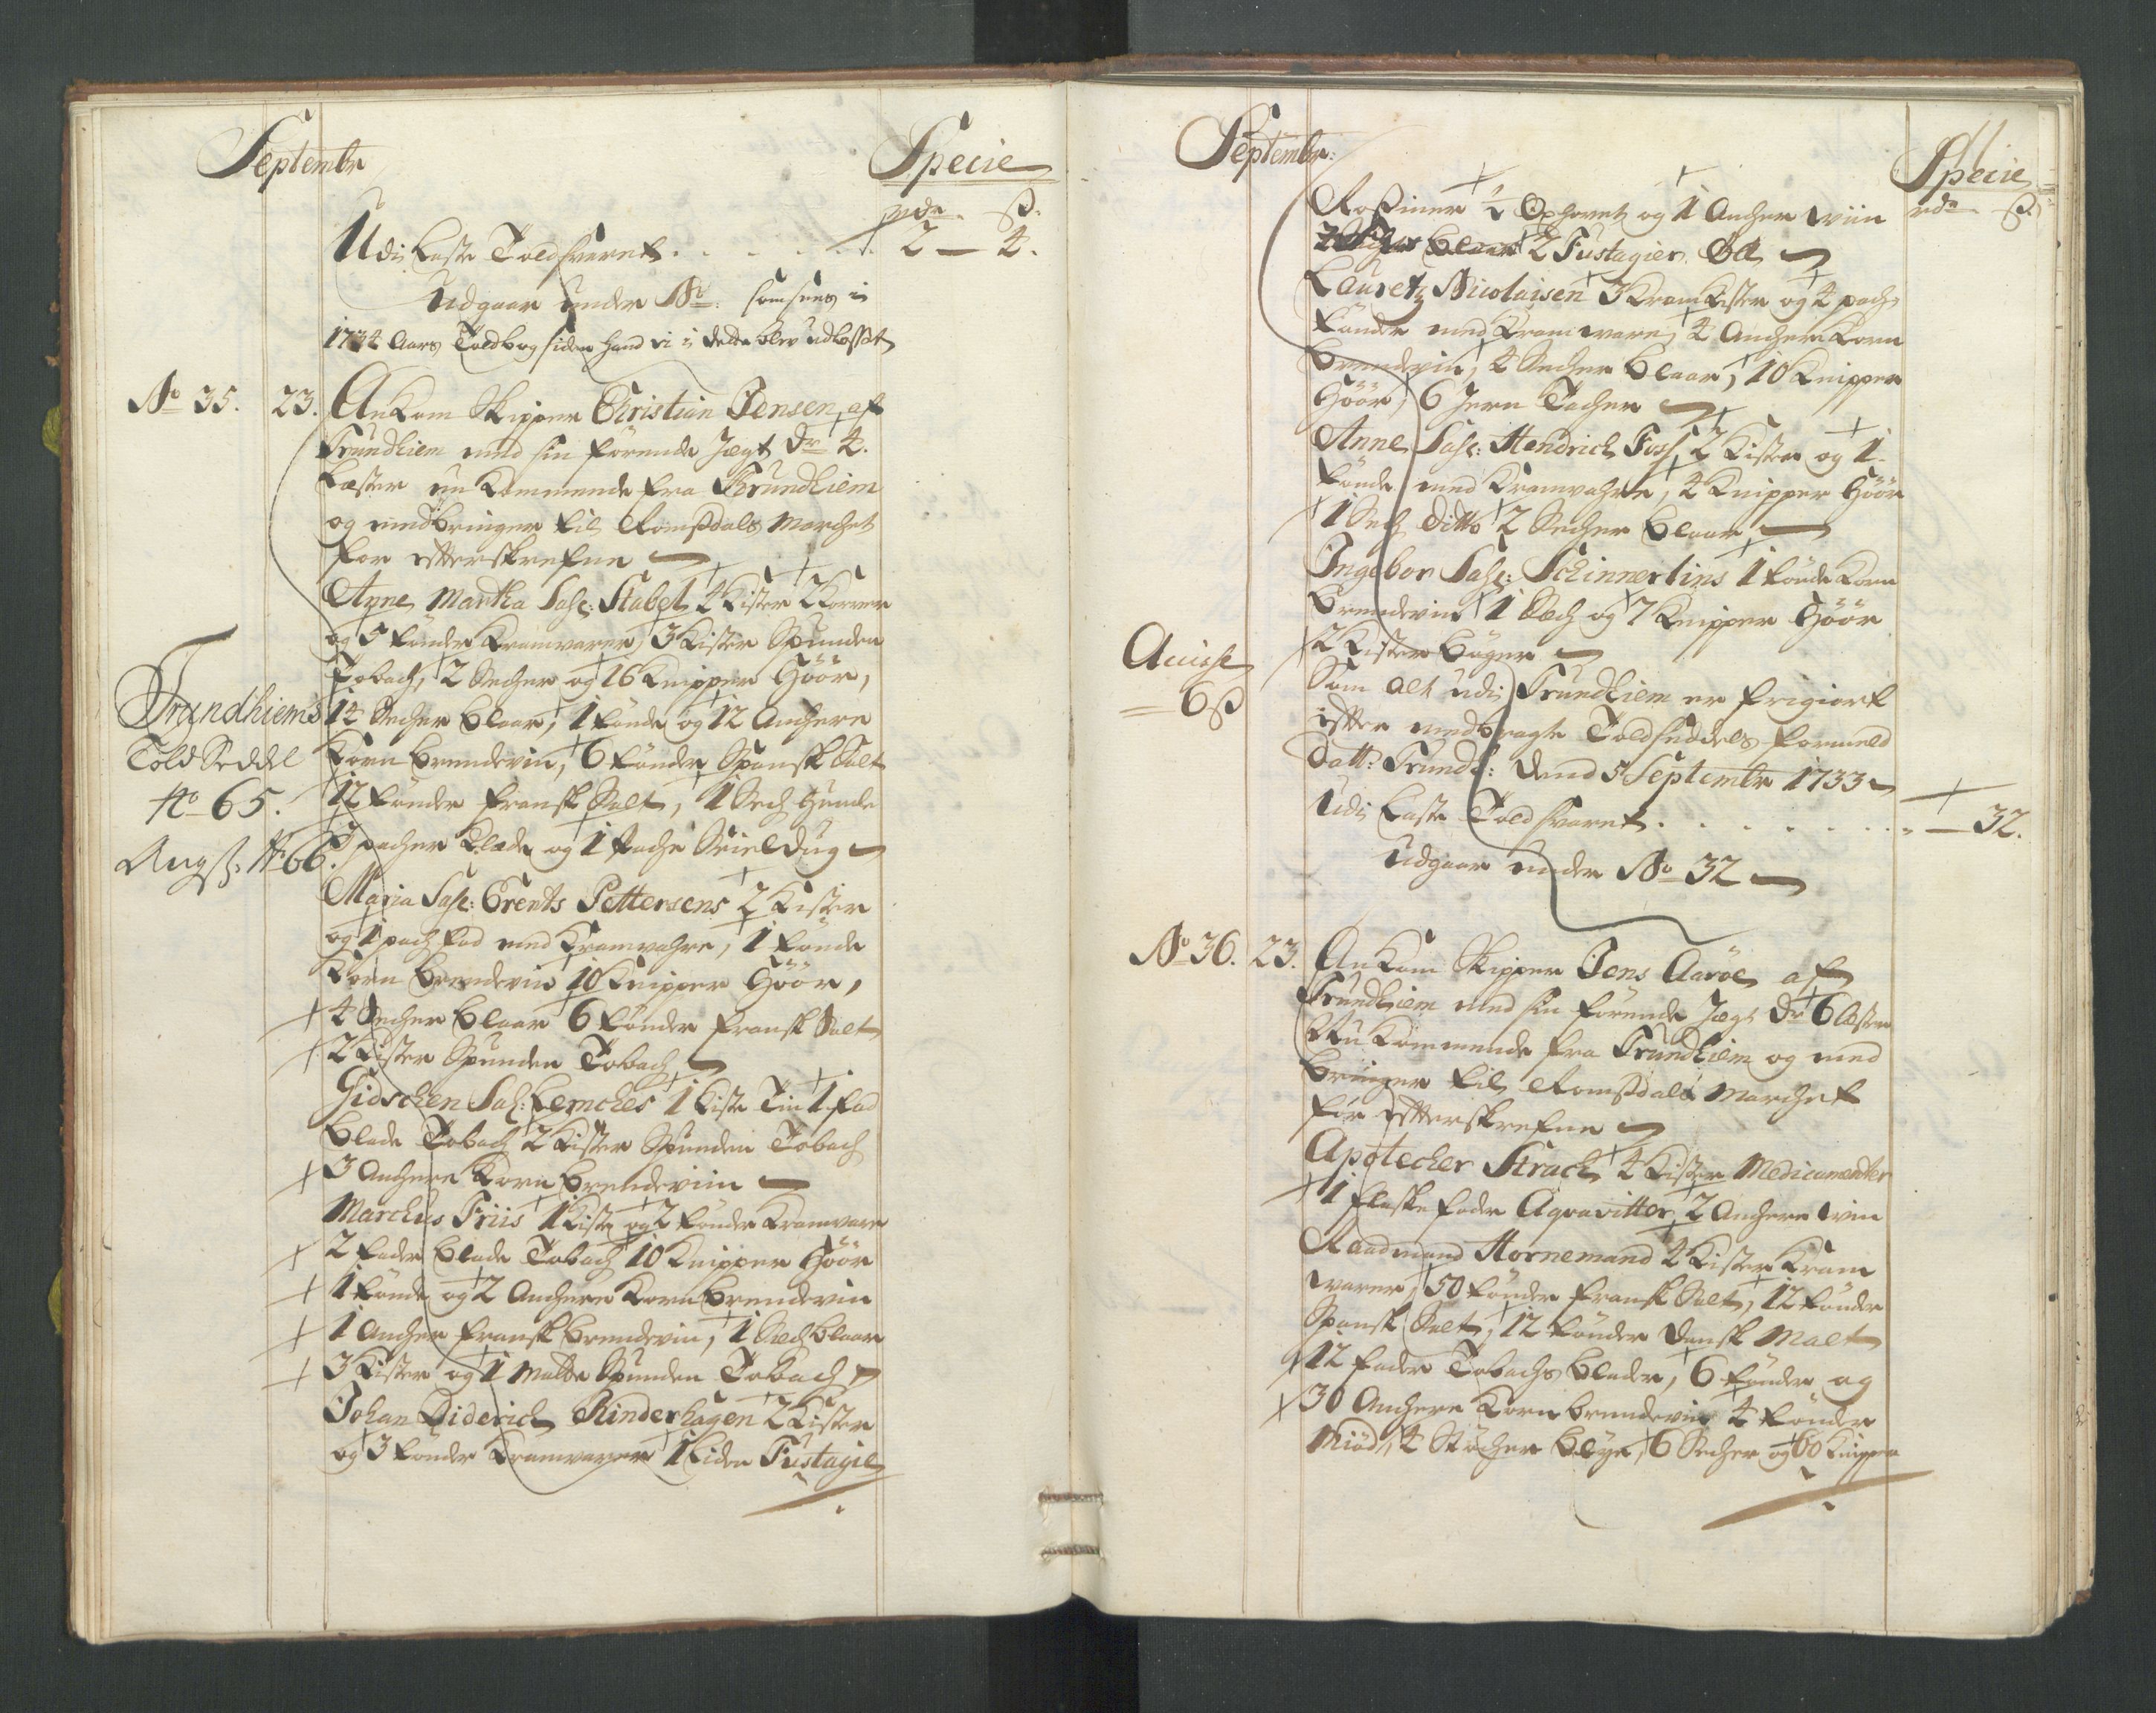 Septembr
Specie
rdr. ß.
Udi Laste Told svaret . . . . . 2 — 4.
Udgaar under No: som sees i
1734 Aars Toldbog siden hand ei i dette blev udlosset
No 35. 23. Ankom Skipper Christian Jensen af
Trundhiem med sin förende Jægt dr. 4.
Læster nu kommende fra Trundhiem
og medbringer til Romsdals Marchet
for efterskrefne
Anne Martha Sahl: Stabel 4 Kister 2 Korver
og 5 tönder Kramvarer, 3 Kister Spunden
Tobach, 2 Secher og 16 Knipper Höör,
Trundhiems
Told Seddel
No 65.
Angß: No 66.
14 Secher Blaar, 1 tönde og 12 Anchere
Korn Brendevin, 6 tönder Spansk Salt
12 tönder fransk Salt, 1 Sech Humle
pacher Klæde og 1 Pache Seieldug
Maria Sahl: Brents Pettersens 2 Kister
og 1 pach fad med Kramvahre, 1 tönde
Korn Brendevin 10 Knipper Höör,
4 Secher Blaar 6 tönder fransk Salt
2 Kister Spunden Tobach
Gidschen Sahl: Lemches 1 Kiste Tin 1 fad
Blade Tobach 2 Kister Spunden Tobach
3 Anchere Korn Brendeviin
Marchus Friis 1 Kiste og 2 tönder Kramvare
2 fade Blade Tobach 10 Knipper Höör
1 tönde og 2 Anchere Korn Brendevin
1 Ancher fransk Brendevin, 1 Sech Blaar
3 Kister og 1 Matte Spunden Tobach
Johan Diderich Rinderhagen 2 Kister
og 3 tönder Kramvarer 1 liden Fustagie
Septembr:
Specie
rdr ß.
Roßiner ½ Oxhovet og 1 Ancher Wiin
2 Fustagier Öll
Lauretz Nicolaisen 3 Kram Kister og 4 pach
tönder med Kram ware, 4 Anchere Korn
Brendevin, 4 Secher Blaar, 10 Knipper
Höör, 6 Jern Tacher
Anne Sahl: Hendrich Foss, 2 Kister og 1
tönde med Kramvahre, 4 Knipper Höör
1 Sech ditto 2 Secher Blaar,
Ingebor Sahl: Schinnertins 1 tönde Korn
Brendevin 1 Sech og 7 Knipper Höör
2 Kister Böger
Accise
6 ß
Som alt udi Trundhiem er frigiort
efter medbragte Toldseddels formeld
datt: Trundh: dend 5 Septembr 1733
Udi Laste Told svaret . . . . . . . — 32.
Udgaar under No 32
No 36. 23. Ankom Skipper Jens Aaröe af
Trundhiem med sin förende Jægt dr 6 læster
Nu kommende fra Trundhiem og med
bringer til Romsdals Marchet
for efterskrefne
Apotecher Strach 4 Kister Medicamenter
1 flaske foder Aqvavitter, 2 Anchere win
Raadmand Hornemand 4 Kister Kram
warer, 50 tönder fransk Salt, 12 tönder
Spansk Salt, 12 tönder dansk Malt
12 fade Tobachs Blade, 6 tönder og
30 Anchere Korn brendevin 4 tönder
Miöd, 4 Stöcher Blye, 6 Secher og 60 Knipper